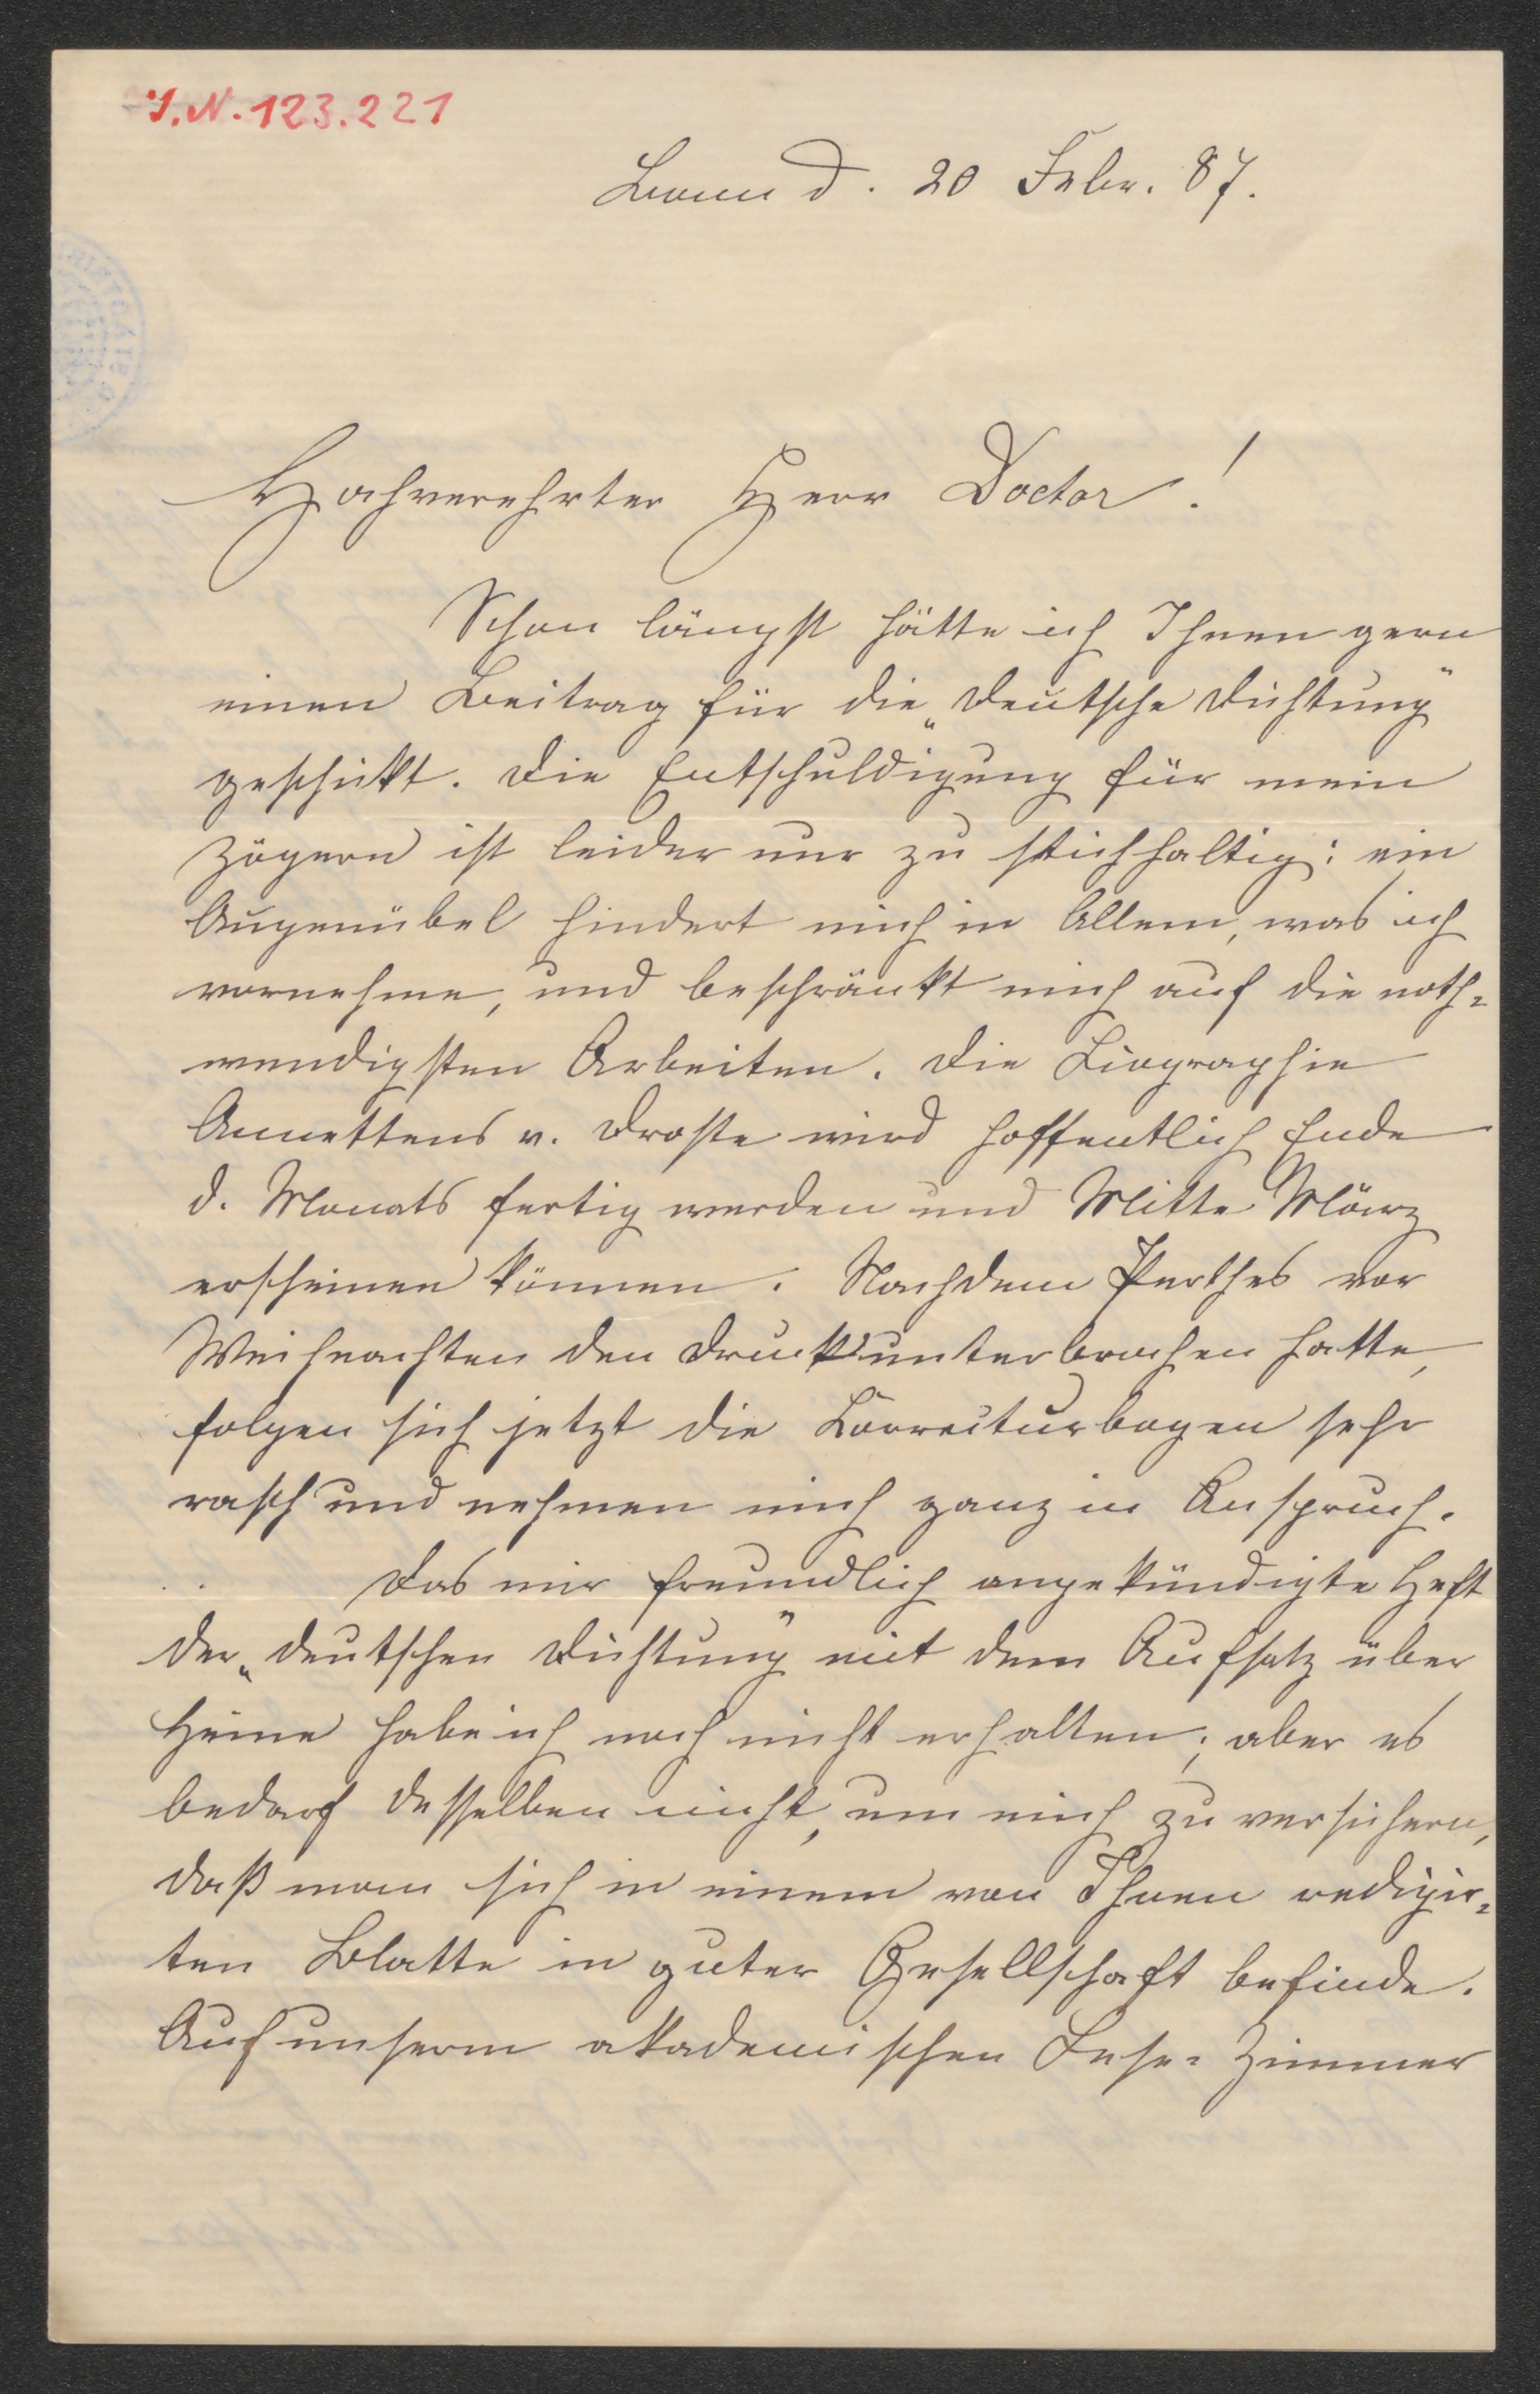 I.N. 123.221
Bonn d. 20 Febr. 87.
Hochverehrter Herr Doctor!
Schon längst hätte ich Ihnen gern
einen Beitrag für die „Deutsche Dichtung"
geschickt. Die Entschuldigung für mein
Zögern ist leider nur zu stichhaltig: ein
Augenübel hindert mich in Allem, was ich
vornehme, und beschränkt mich auf die noth-
wendigsten Arbeiten. Die Biographie
Annettens v. Droste wird hoffentlich Ende
d. Monats fertig werden und Mitte März
erscheinen können. Nachdem Perthes vor
Weihnachten den Druck unterbrochen hatte,
folgen sich jetzt die Correcturbogen sehr
rasch und nehmen mich ganz in Anspruch.
Das mir freundlich angekündigte Heft
der „Deutschen Dichtung" mit dem Aufsatz über
Heine habe ich noch nicht erhalten; aber es
bedarf desselben nicht, um mich zu versichern,
daß man sich in einem von Ihnen redigir-
ten Blatte in guter Gesellschaft befinde.
Auf unserm akademischen Lese-Zimmer